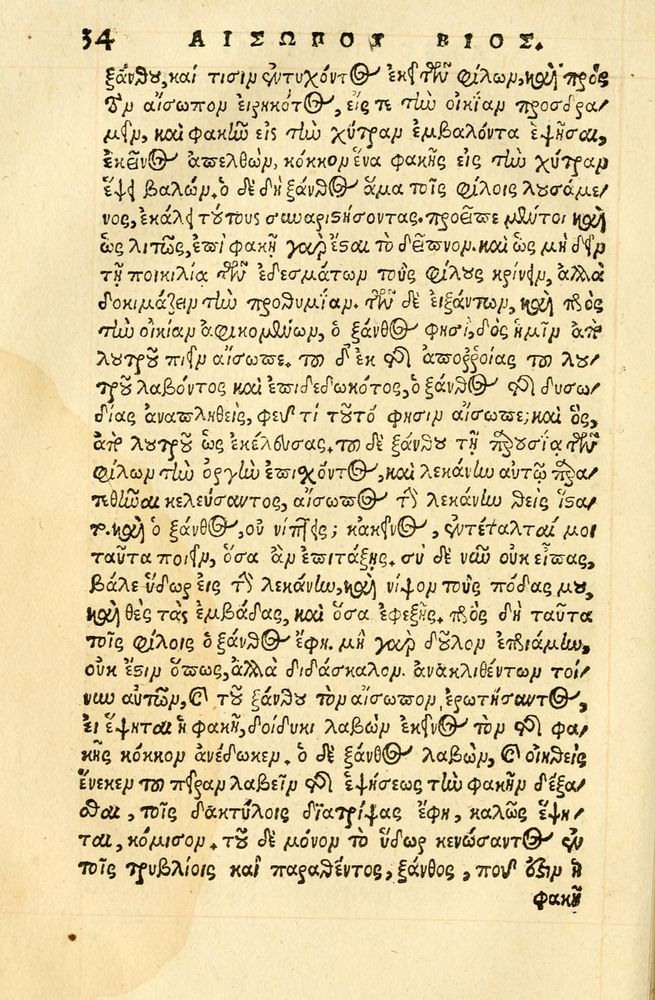 34 ΑΙΣΩΠΟΥ ΒΙΟΣ.
ξάνθου, καί τισιν ἐντυχόντος ἐκεῖ τῶν φίλων, καὶ πρὸς
τὸν αἴσωπον εἰρηκότος, εἴς τε τὴν οἰκίαν προσδρα-
μεῖν, καὶ φακὴν εἰς τὴν χύτραν ἐμβαλόντα ἑψῆσαι,
ἐκεῖνος ἀπελθὼν, κόκκον ἕνα φακῆς εἰς τὴν χύτραν
ἕψει βαλών. ὁ δὲ δὴ ξάνθος ἅμα τοῖς φίλοις λουσάμε-
νος, ἐκάλει τούτους συναριστήσοντας. προεῖπε μέντοι καὶ
ὡς λιτῶς, ἐπὶ φακῇ γὰρ ἔσται τὸ δεῖπνον. καὶ ὡς μὴ δεῖν
τῇ ποικιλίᾳ τῶν ἐδεσμάτων τοὺς φίλους κρίνειν, ἀλλὰ
δοκιμάζειν τὴν προθυμίαν. τῶν δὲ εἰξάντων, καὶ πρὸς
τὴν οἰκίαν ἀφικομένων, ὁ ξάνθος φησὶ, δὸς ἡμῖν ἀπὸ
λουτροῦ πιεῖν αἴσωπε. τοῦ δ' ἐκ τῆς ἀποῤῥοίας τοῦ λου-
τροῦ λαβόντος καὶ ἐπιδεδωκότος, ὁ ξάνθος τῆς δυσω-
δίας ἀναπλησθεὶς, φεῦ τί τοῦτό φησιν αἴσωπε; καὶ ὃς,
ἀπὸ λουτροῦ ὡς ἐκέλευσας. τοῦ δὲ ξάνθου τῇ παρουσίᾳ τῶν
φίλων τὴν ὀργὴν ἐπισχόντος, καὶ λεκάνην αὐτῷ παρα-
τεθῆναι κελεύσαντος, αἴσωπος τὴν λεκάνην θεὶς ἵστα-
το. καὶ ὁ ξάνθος, οὐ νίπτεις; κἀκεῖνος, ἐντέταλταί μοι
ταῦτα ποιεῖν, ὅσα ἂν ἐπιτάξῃς. σὺ δὲ νῦν οὐκ εἶπας,
βάλε ὕδωρ εἰς τὴν λεκάνην, καὶ νίψον τοὺς πόδας μου,
καὶ θὲς τὰς ἐμβάδας, καὶ ὅσα ἐφεξῆς. πρὸς δὴ ταῦτα
τοῖς φίλοις ὁ ξάνθος ἔφη. μὴ γὰρ δοῦλον ἐπριάμην,
οὐκ ἔστιν ὅπως, ἀλλὰ διδάσκαλον. ἀνακλιθέντων τοί-
νυν αὐτῶν, καὶ τοῦ ξάνθου τὸν αἴσωπον ἐρωτήσαντος,
εἰ ἕψηται ἡ φακῆ, δοίδυκι λαβὼν ἐκεῖνος τὸν τῆς φα-
κῆς κόκκον ἀνέδωκεν. ὁ δὲ ξάνθος λαβὼν, καὶ οἰηθεὶς
ἕνεκεν τοῦ πεῖραν λαβεῖν τῆς ἑψήσεως τὴν φακῆν δέξα-
σθαι, τοῖς δακτύλοις διατρίψας ἔφη, καλῶς ἕψη-
ται, κόμισον. τοῦ δὲ μόνον τὸ ὕδωρ κενώσαντος ἐν
τοῖς τρυβλίοις καὶ παραθέντος, ξάνθος, ποῦ ἐστιν ἡ
φακῆ